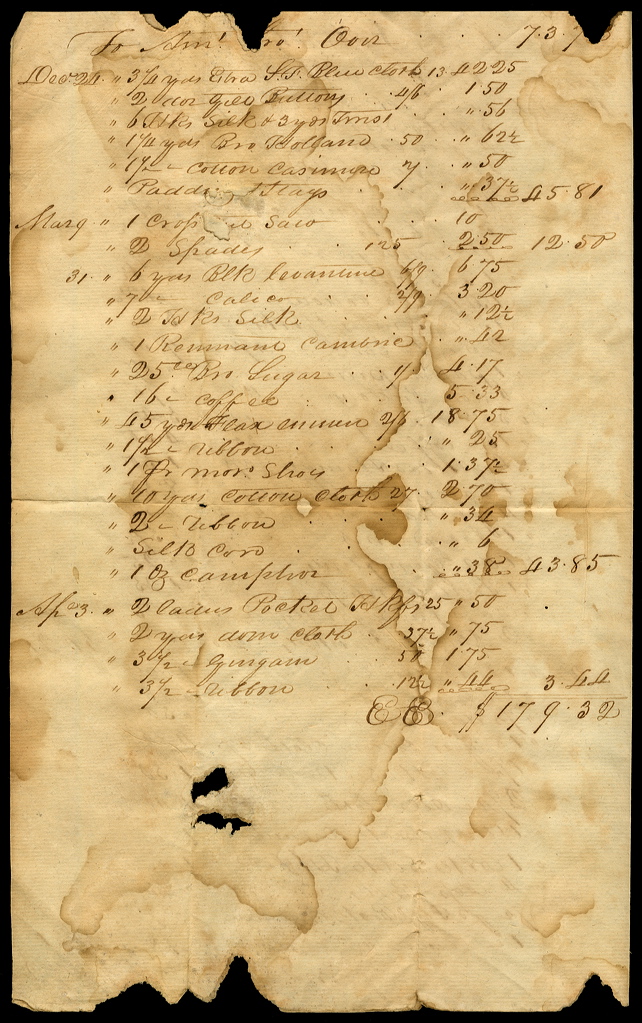 To Amt. Bro't. Over . . 73.7
Decr 24. " 3 1/4 yds Extra S.F. Blue Cloth 13. 42 25
" 2 doz Gilt Buttons . 4/6 1.50
" 6 Hks Silk & 3 yds Twist " 56
" 1 1/4 yds Bro Holland . 50 . " 62 1/2
" 1 1/2 " Cotton Casimere " 50
" Padding & Stays . " 37 1/2 45.81
Mar 9 " 1 Cross Cut Saw . 10
" 2 Spades 125 2.50 12.50
31. " 6 yds Blk Levantine 6/9 6 75
" 7 " Calico 2/9 3.20
" 2 Hks Silk . . " 12 1/2
" 1 Remnant Cambric " 42
" 25 lb Bro Sugar . 1/ 4.17
" 16 " Coffee . . 5.33
" 45 yds Flax Linnen 2/6 18.75
" 1 1/2 " ribbon . . " 25
" 1 Pr Moro Shoes . 1.37 1/2
" 10 yds Cotton Cloth 27. 2.70
" 2 " ribbon . " 34
" Silk Cord . . " 6
" 1 oz Camphor . " 38 43.85
Apl 3. " 2 ladies Pocket Hkfs 25 " 50 .
" 2 yds dom Cloth . 37 1/2 " 75
" 3 1/2 " Gingam 50 1.75
" 3 1/2 " ribbon . 12 1/2 " 44 3.44
E E. $179.32